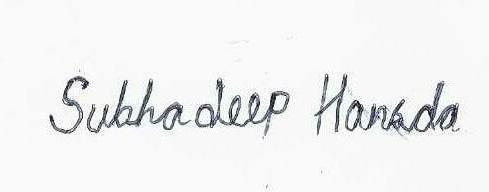 Subhadeep Hansda